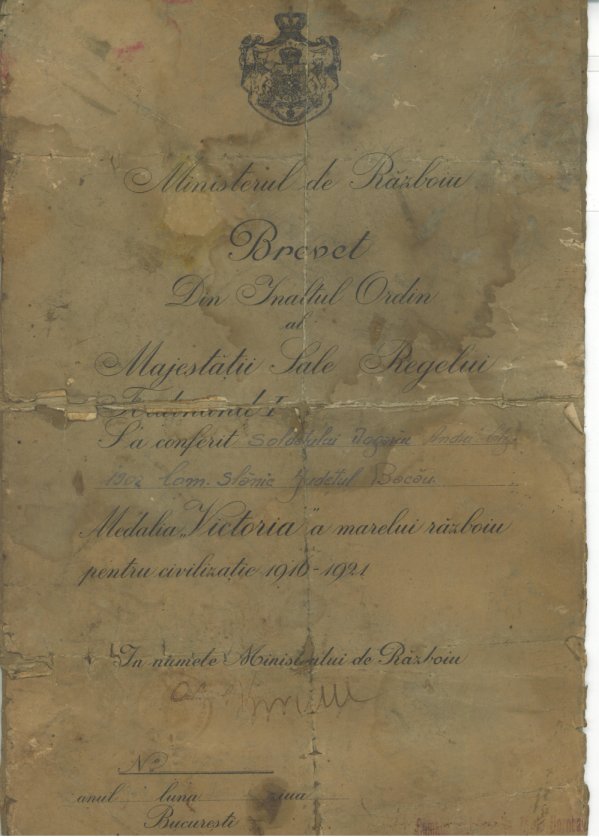 Ministerul de Războiu
Brevet
Din Inaltul Ordin
al
Majestății Sale Regelui
Ferdinand I
S'a conferit soldatului Andrei ctg.
1902 Com. Slănic județul Bacău
Medalia „Victoria" a marelui războiu
pentru civilizație 1916-1921
In numele Ministrului de Războiu
No
anul luna ziua
București